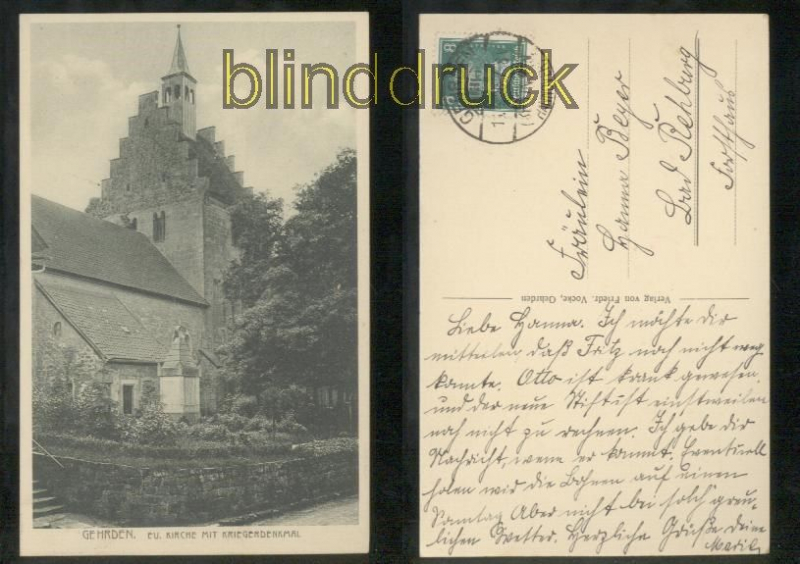 blinddruck
GEHRDEN. EV. KIRCHE MIT KRIEGERDENKMAL
8
Fräulein
Hanna Beyer
Bad Rehburg
Forsthaus
Verlag von Friedr. Vocke, Gehrden
Liebe Hanna. Ich möchte dir
mitteilen, daß Fritz noch nicht weg
konnte. Otto ist krank gewesen,
und der neue Stift ist einstweilen
noch nicht zu rechnen. Ich gebe dir
Nachricht, wenn er kommt. Eventuell
holen wir die Bohnen auf einen
Sonntag. Aber nicht bei solch' greu-
lichen Wetter. Herzliche Grüße Deine